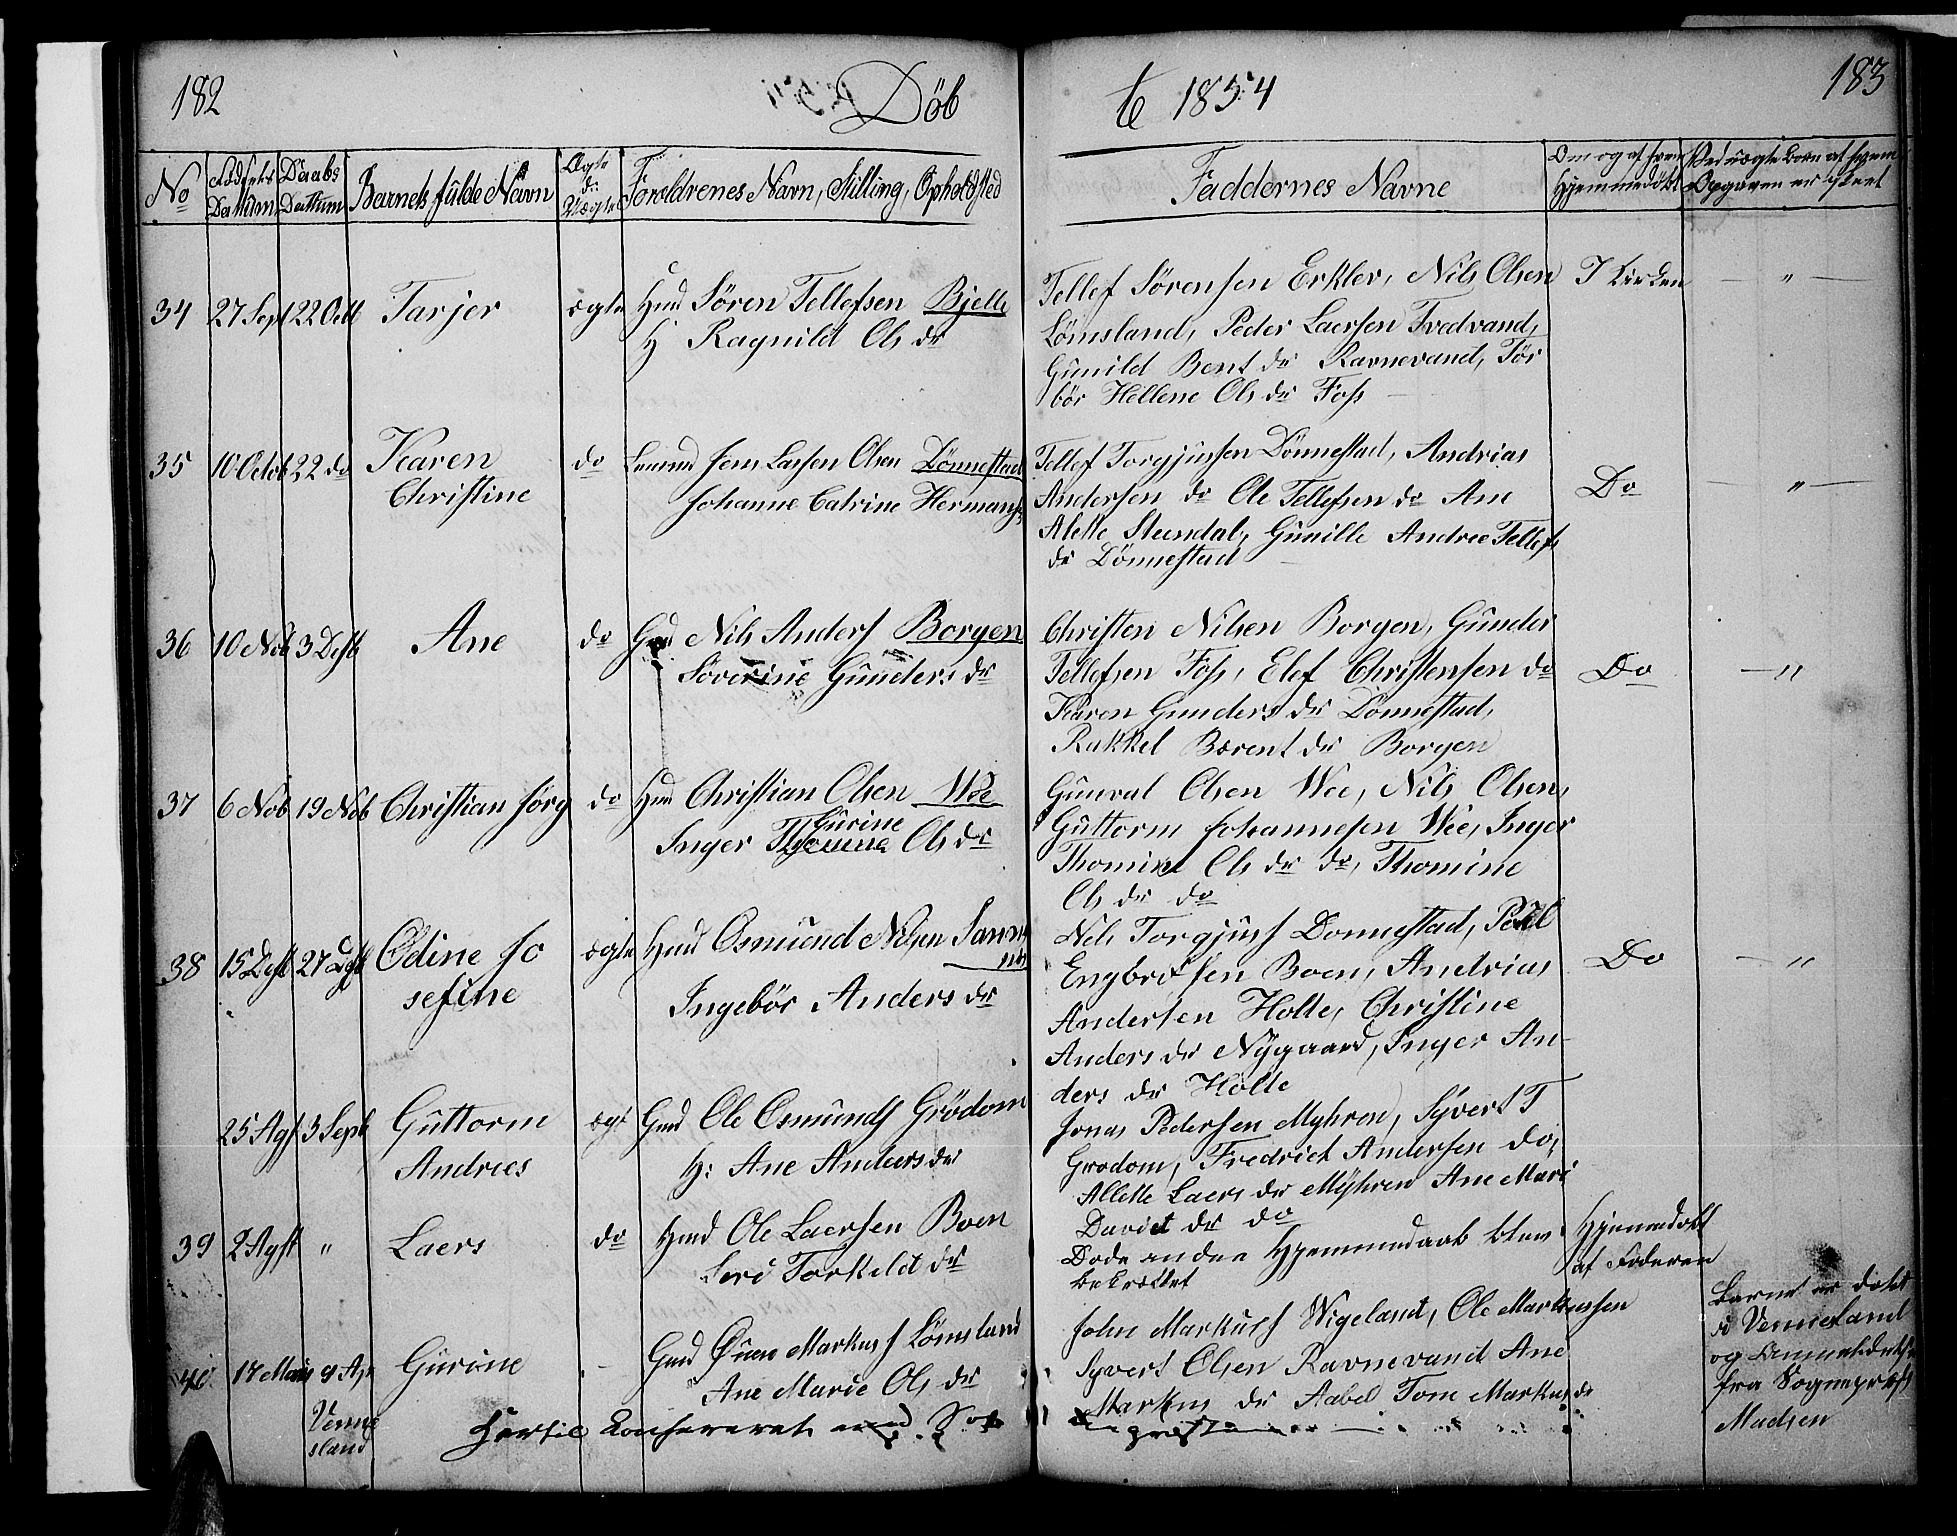 182
Döb
te 1854
183
No
Födsels Dattum
Daabs Dattum
Barnets fulde Navn
Ægte el Uægte
Forældrenes Navn, Stilling, Opholdsted
Faddernes Navne
Om og af hvem Hjemmedöbt
Ved uægte Börn af hvem Opgaven er skeet
34 27 Sept 22 Octb Tarjer ægte Hmd Sören Tellefsen Bjelle
H Ragnild Ols dr
Tellef Sörensen Erklev, Nils Olsen
Lömsland, Peder Laersen Tvedvand,
Gunild Bent dr Ravnevand, Tör
bör Hellene Ols dr Foss
I Kirken
"
35 10 Octob 22 do Karen
Christine
do Jens Larsen Olsen Dönnestad
Johanne Catrine Hermans
Tellef Torgjussen Dönnestad, Andrias
Andersen do Ole Tellefsen do Ane
Alette Steendal, Gunille Andree Tellefs
dr Dönnestad
Do
"
36 10 Nob 3 Desb Ane do Gmd Nils Anders Borgen
Söverine Gunders dr
Christen Nilsen Borgen, Gunder
Tellefsen Foss, Elef Christensen do
Karen Gunders dr Dönnestad,
Rakkel Bærent dr Borgen
Do
"
37 6 Nob 19 Nob Christian Jörg do Hmd Christian Olsen Wee
Gurine
Inger Ols dr
Gunval Olsen Wee, Nils Olsen,
Guttorm Johannesen Wee, Inger
Thomine Ols dr do, Thomine
Ols dr do
38 15 Desb 27 Desb Odine Jo
sefine
ægte Hmd Osmund Nilsen
Ingebör Anders dr
Nils Torgjus Donnestad, Pedel
Engbretsen Boen, Andrias
Andersen Holte, Christine
Anders dr Nygaard, Inger An-
ders dr Holte
Do
"
25 Agst 3 Septb Guttorm
Andrees
ægt Gmd Ole Osmunds Grödom
H: Ane Anders dr
Jonas Pedersen Myhren, Syvert T
Grodom, Fredrick Andersen do,
Allette Laers dr Myhren Ane Mari
David dr do
39 2 Agst " Laers do Hmd Ole Laersen Boen
Seri Torkild dr
Döde inden Hjemmedaab blev
bekræftet
Hjemmedobt
af Faderen
40 17 Marts 9 Apr Gurine
Vennesland
Gmd Öuen Markus Lömsland
Ane Marie Ols dr
John Markus Wigeland, Ole Markussen
Syvert Olsen Ravnevand Ane
Markus dr Aabel Tom Markus dr
Barnet er dobt
i Venneland
og Anmeldelse
fra Sognepræst
Madsen
Hertil Konfereret med